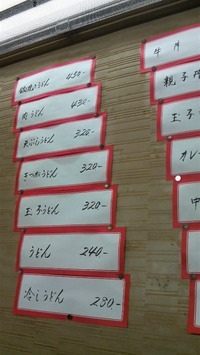 鍋焼うどん 450-
肉うどん 430-
天ぷらうどん 320-
きつねうどん 320-
玉子うどん 320-
うどん 240-
冷しうどん 230-
牛丼
親子丼
玉子
カレ
中